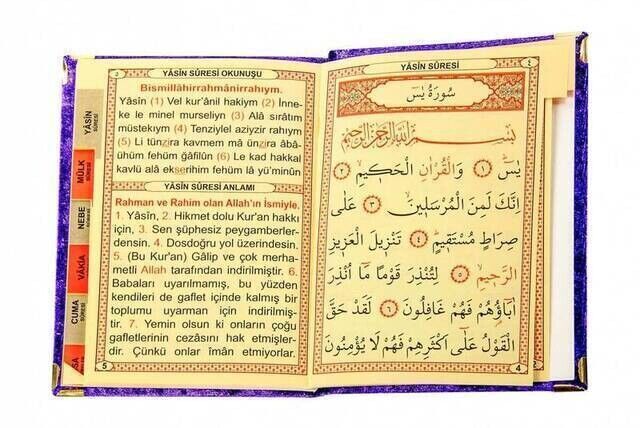 YÂSİN SÛRESİ OKUNUŞU
٥
Bismillâhirrahmânirrahıym.
Yâsîn (1) Vel kur'ânil hakiym (2) İnne-
ke le minel murseliyn (3) Alâ sırâtım
müstekıym (4) Tenziylel aziyzir rahıym
(5) Li tünzira kavmem mâ ünzira âbâ-
ühüm fehüm ğâfilûn (6) Le kad hakkal
kavlü alâ ekserihim fehüm lâ yü'minûn
YÂSİN SÛRESİ ANLAMI
Rahman ve Rahim olan Allah'ın İsmiyle.
1. Yâsîn, 2. Hikmet dolu Kur'an hakkı
için, 3. Sen şüphesiz peygamberler-
densin. 4. Dosdoğru yol üzerindesin.
5. (Bu Kur'an) Gâlip ve çok merha-
metli Allah tarafından indirilmiştir. 6.
Babaları uyarılmamış, bu yüzden
kendileri de gaflet içinde kalmış bir
toplumu uyarman için indirilmiş-
tir. 7. Yemin olsun ki onların çoğu
gafletlerinin cezasını hak etmişler-
dir. Çünkü onlar îmân etmiyorlar.
5
YÂSİN SÛRESİ
MÜLK SÛRESİ
NEBE SÛRESİ
VÂKIA SÛRESİ
CUMA SÛRESİ
YÂSİN SÛRESİ
٤
سُورَةُ يٰسٓ
بِسْمِ اللّٰهِ الرَّحْمٰنِ الرَّحِيمِ
يٰسٓ ١ وَالْقُرْاٰنِ الْحَكِيمِ ٢
اِنَّكَ لَمِنَ الْمُرْسَلِينَ ٣ عَلٰى
صِرَاطٍ مُسْتَقِيمٍ ٤ تَنْزِيلَ الْعَزِيزِ
الرَّحِيمِ ٥ لِتُنْذِرَ قَوْمًا مَٓا اُنْذِرَ
اٰبَٓاؤُهُمْ فَهُمْ غَافِلُونَ ٦ لَقَدْ حَقَّ
الْقَوْلُ عَلٰٓى اَكْثَرِهِمْ فَهُمْ لَا يُؤْمِنُونَ
4
2